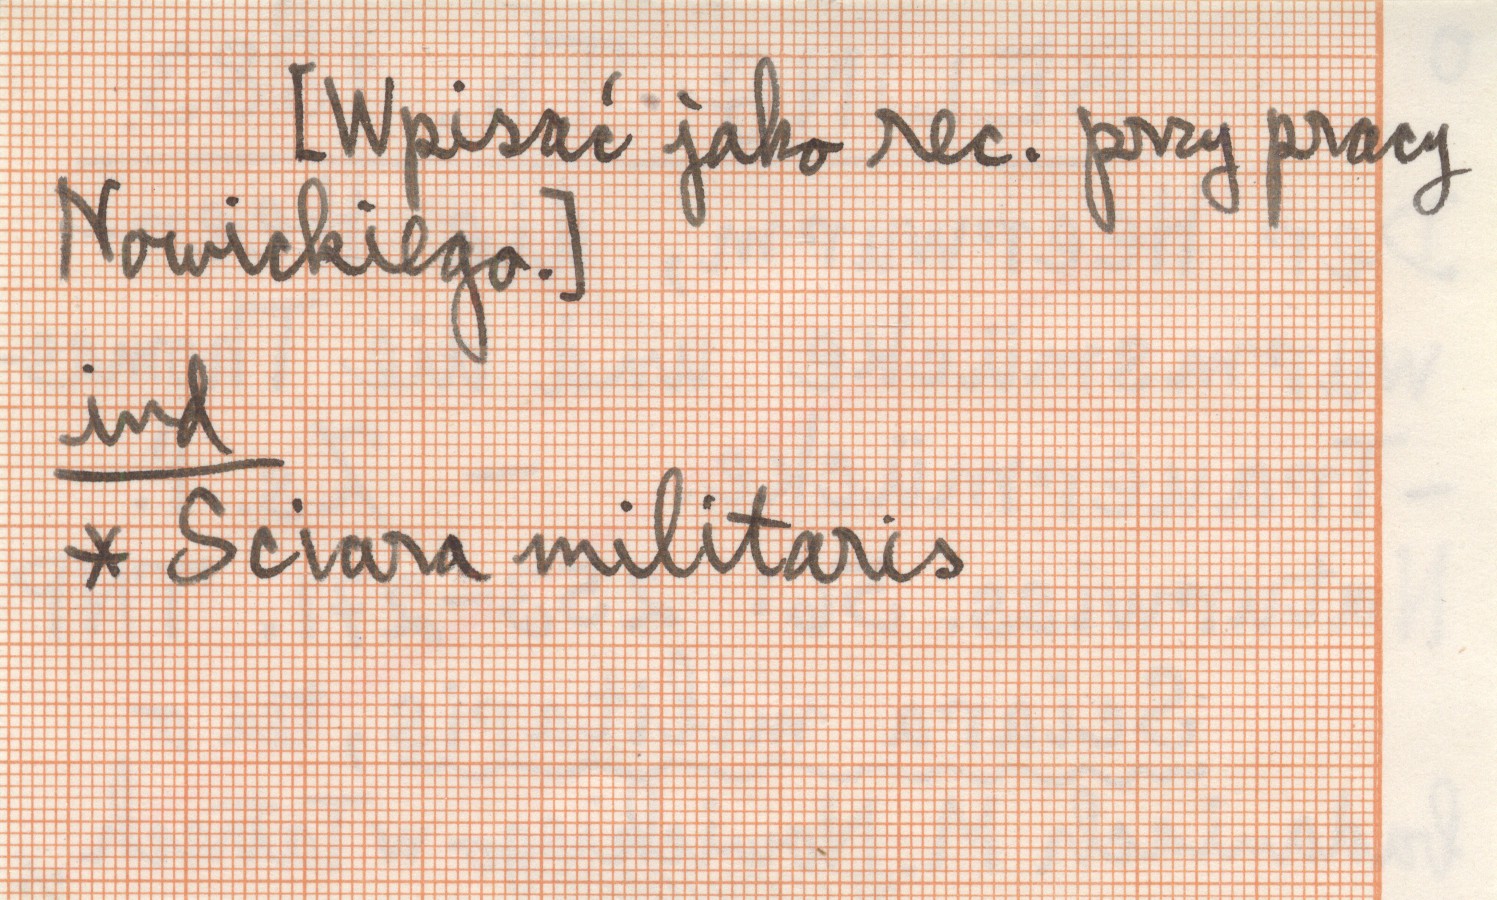 [Wpisać jako rec. przy pracy
Nowickiego.]
ind
* Sciara militaris